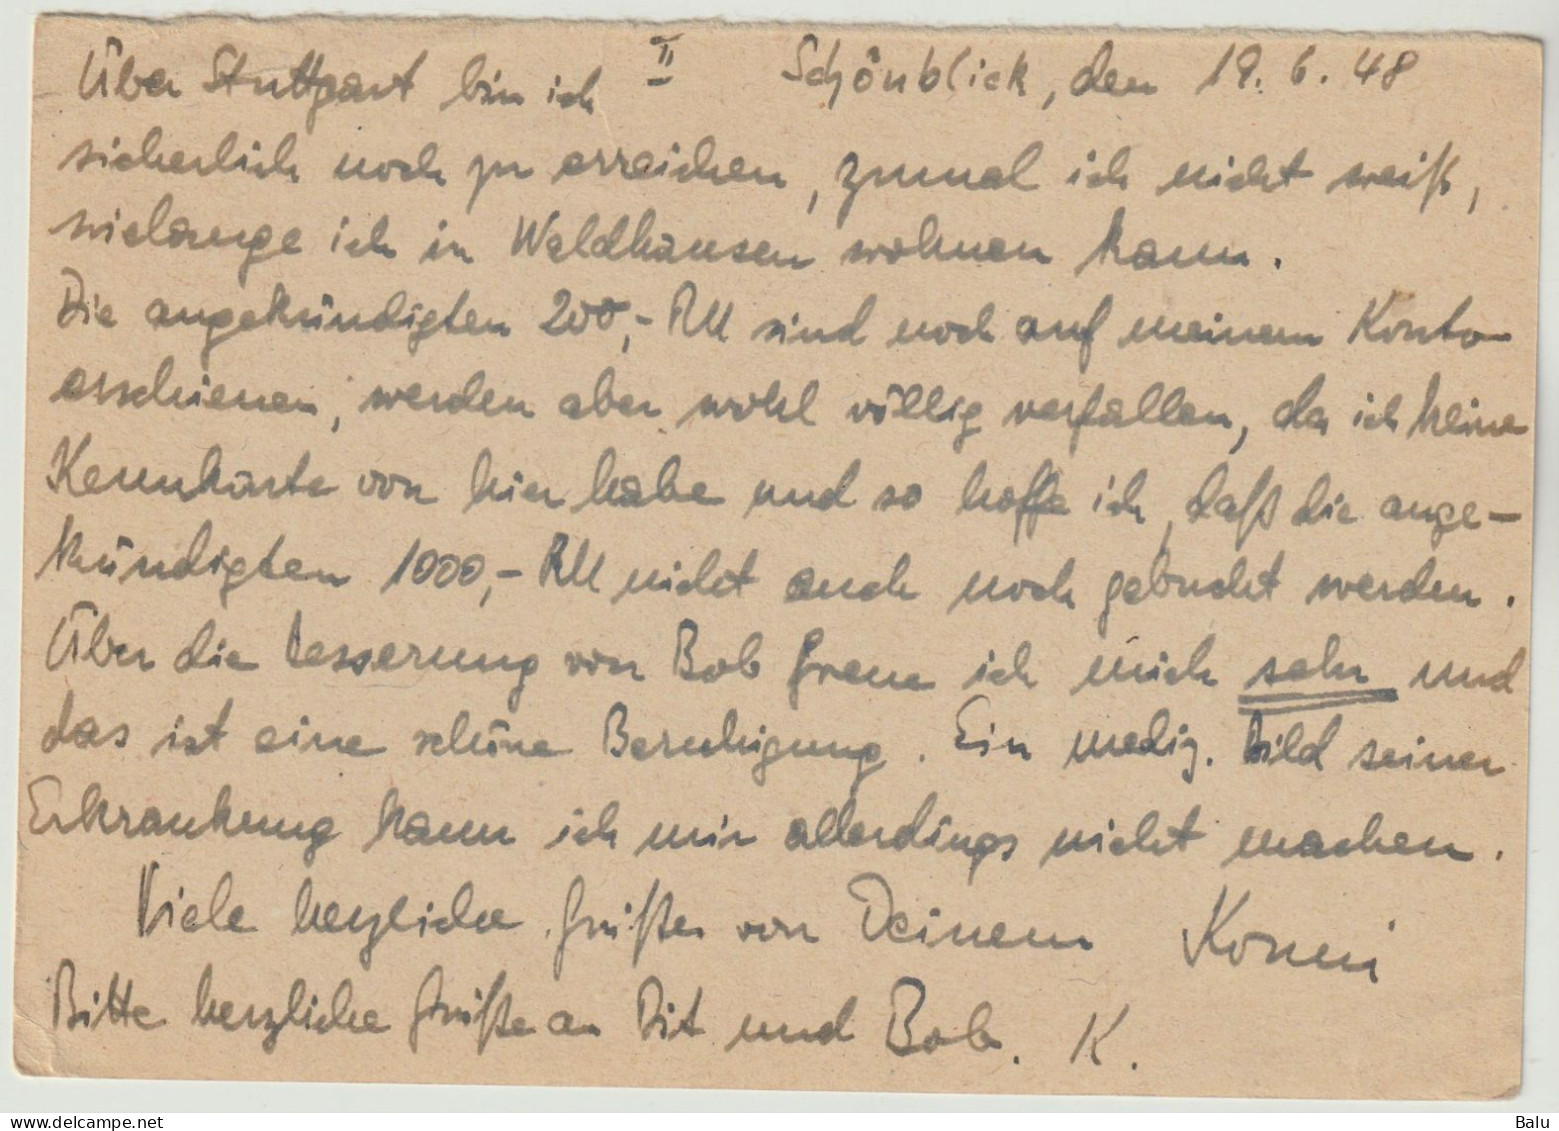 II Schönblick, den 19. 6. 48
Über Stuttgart bin ich
sicherlich noch zu erreichen, zumal ich nicht weiß,
wielange ich in Waldhausen wohnen kann.
Die angekündigten 200,- RM sind noch auf meinem Konto
erschienen, werden aber wohl völlig verfallen, da ich keine
Kennkarte von hier habe und so hoffe ich, daß die ange-
kündigten 1000,- RM nicht auch noch gebucht werden.
Über die Besserung von Bob freue ich mich sehr und
das ist eine schöne Beruhigung. Ein mediz. Bild seiner
Erkrankung kann ich mir allerdings nicht machen.
Viele herzliche Grüße von Deinem Konni
Bitte herzliche Grüße an Dit und Bob. K.
Balu